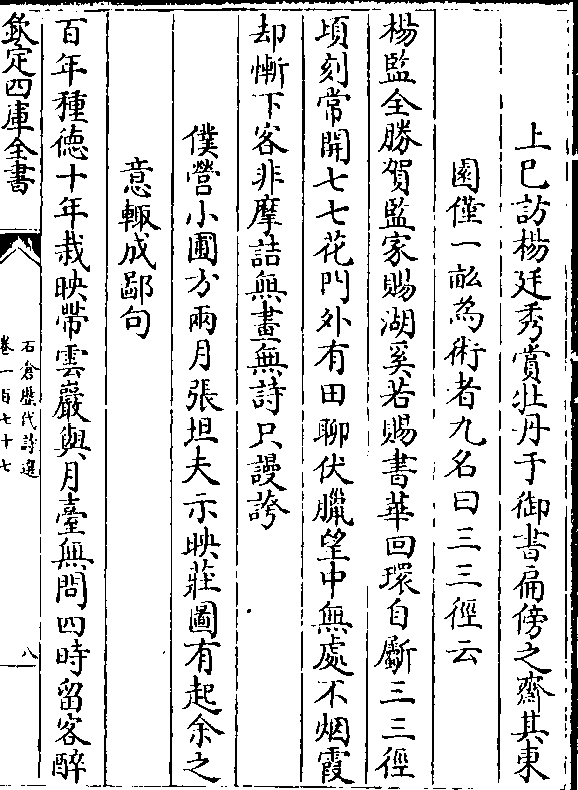 上巳訪楊廷秀賞牡丹于御書扁傍之齋其東
園僅一畝為術者九名曰三三徑云
楊監全勝賀監家賜湖奚若賜書華回環自斸三三徑
頃刻常開七七花門外有田聊伏臘望中無處不烟霞
却慚下客非摩詰無畫無詩只謾誇
僕營小圃方兩月張坦夫示映莊圖有起余之
意輒成鄙句
百年種徳十年栽映帶雲巖與月臺無問四時留客醉
欽定四庫全書
石倉歷代詩選
卷一百七十七
八